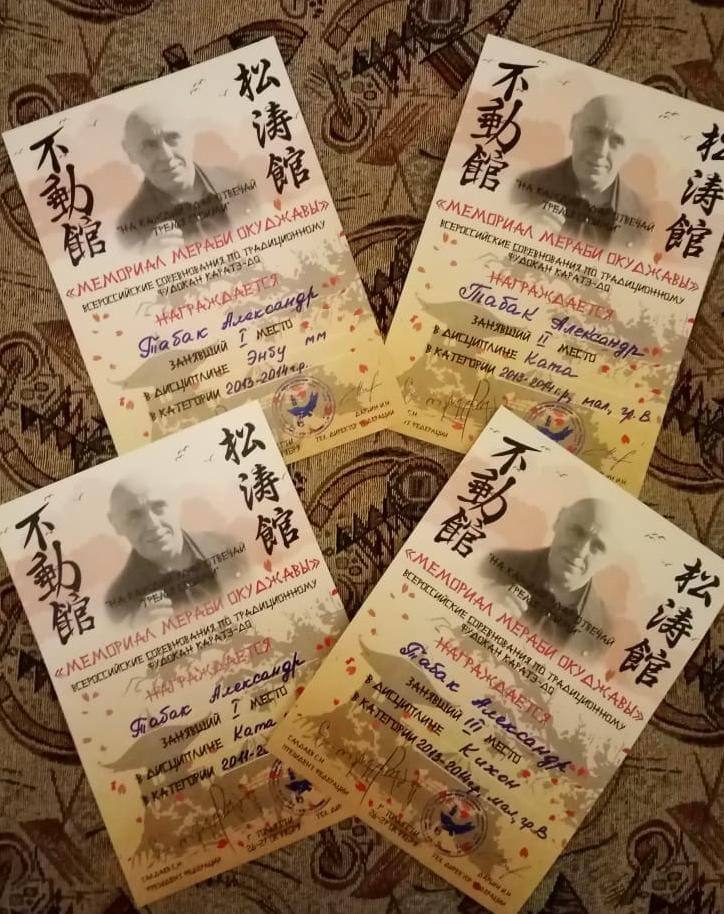 不動館
松濤館
"НА КАЖДОЕ ДОБРО ОТВЕЧАЙ
ТРЕМЯ
«МЕМОРИАЛ МЕРАБИ ОКУДЖАВЫ»
ВСЕРОССИЙСКИЕ СОРЕВНОВАНИЯ ПО ТРАДИЦИОННОМУ
ФУДОКАН КАРАТЭ-ДО
НАГРАЖДАЕТСЯ
Табак Александр
ЗАНЯВШИЙ I МЕСТО
В ДИСЦИПЛИНЕ Энбу мм
В КАТЕГОРИИ 2013-2014г.р.
ДАРЬИН И.Н
ТЕХ. ДИРЕКТОР ФЕДЕРАЦИИ
不動館
松濤館
"НА КАЖДОЕ ДОБРО ОТВЕЧАЙ
ТРЕМЯ
«МЕМОРИАЛ МЕРАБИ ОКУДЖАВЫ»
ВСЕРОССИЙСКИЕ СОРЕВНОВАНИЯ ПО ТРАДИЦИОННОМУ
ФУДОКАН КАРАТЭ-ДО
НАГРАЖДАЕТСЯ
Табак Александр
ЗАНЯВШИЙ II МЕСТО
В ДИСЦИПЛИНЕ Ката
В КАТЕГОРИИ 2013-2014г.р, мал, гр.В
不動館
松濤館
"НА КАЖДОЕ ДОБРО ОТВЕЧАЙ
ТРЕМЯ
«МЕМОРИАЛ МЕРАБИ ОКУДЖАВЫ»
ВСЕРОССИЙСКИЕ СОРЕВНОВАНИЯ ПО ТРАДИЦИОННОМУ
ФУДОКАН КАРАТЭ-ДО
НАГРАЖДАЕТСЯ
Табак Александр
ЗАНЯВШИЙ I МЕСТО
В ДИСЦИПЛИНЕ Ката
В КАТЕГОРИИ 2011-2
САЛДАЕВ С.Н
ПРЕЗИДЕНТ ФЕДЕРАЦИИ
Г. ТОЛЬЯТТИ
26-27 ОКТЯБРЯ
ТЕХ. ДИР
不動館
松濤館
"НА КАЖДОЕ ДОБРО ОТВЕЧАЙ
ТРЕМЯ
«МЕМОРИАЛ МЕРАБИ ОКУДЖАВЫ»
ВСЕРОССИЙСКИЕ СОРЕВНОВАНИЯ ПО ТРАДИЦИОННОМУ
ФУДОКАН КАРАТЭ-ДО
НАГРАЖДАЕТСЯ
Табак Александр
ЗАНЯВШИЙ III МЕСТО
В ДИСЦИПЛИНЕ Кихон
В КАТЕГОРИИ 2013-2014г.р, мал, гр.В
САЛДАЕВ С.Н
ПРЕЗИДЕНТ ФЕДЕРАЦИИ
Г. ТОЛЬЯТТИ
26-27 ОКТЯБРЯ
ДАРЬИН И.Н
ТЕХ. ДИРЕКТОР ФЕДЕРАЦИИ